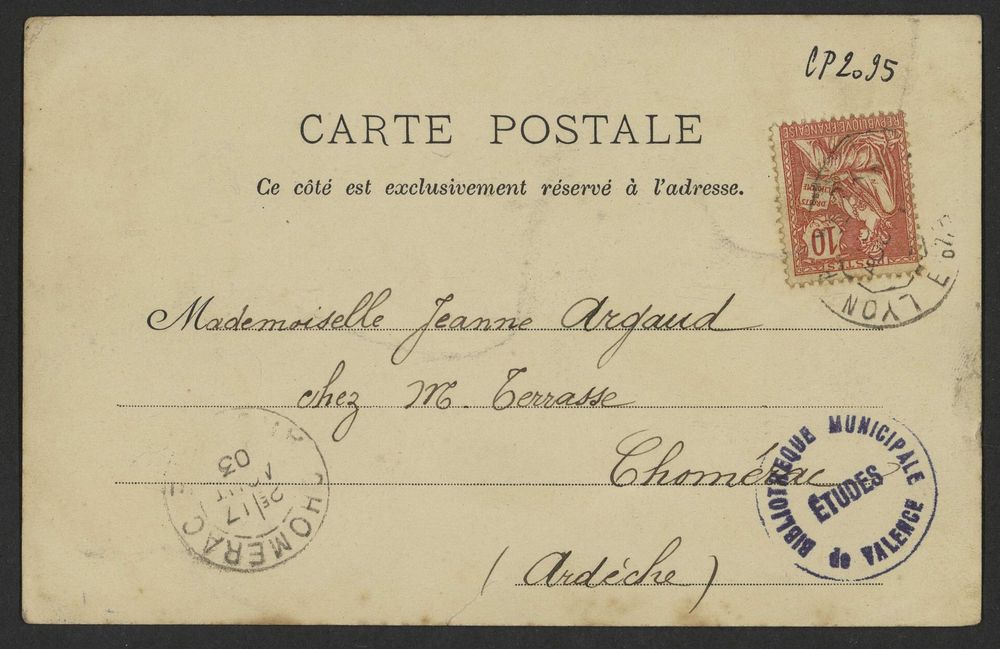 CP2095
CARTE POSTALE
Ce côté est exclusivement réservé à l'adresse.
REPUBLIQUE FRANÇAISE
DROITS
10
POSTES
LYON
Mademoiselle Jeanne Argaud
chez M. Terrasse
Chomérac
(Ardèche)
CHOMERAC
17
AOUT
03
BIBLIOTHEQUE MUNICIPALE
ÉTUDES
de VALENCE